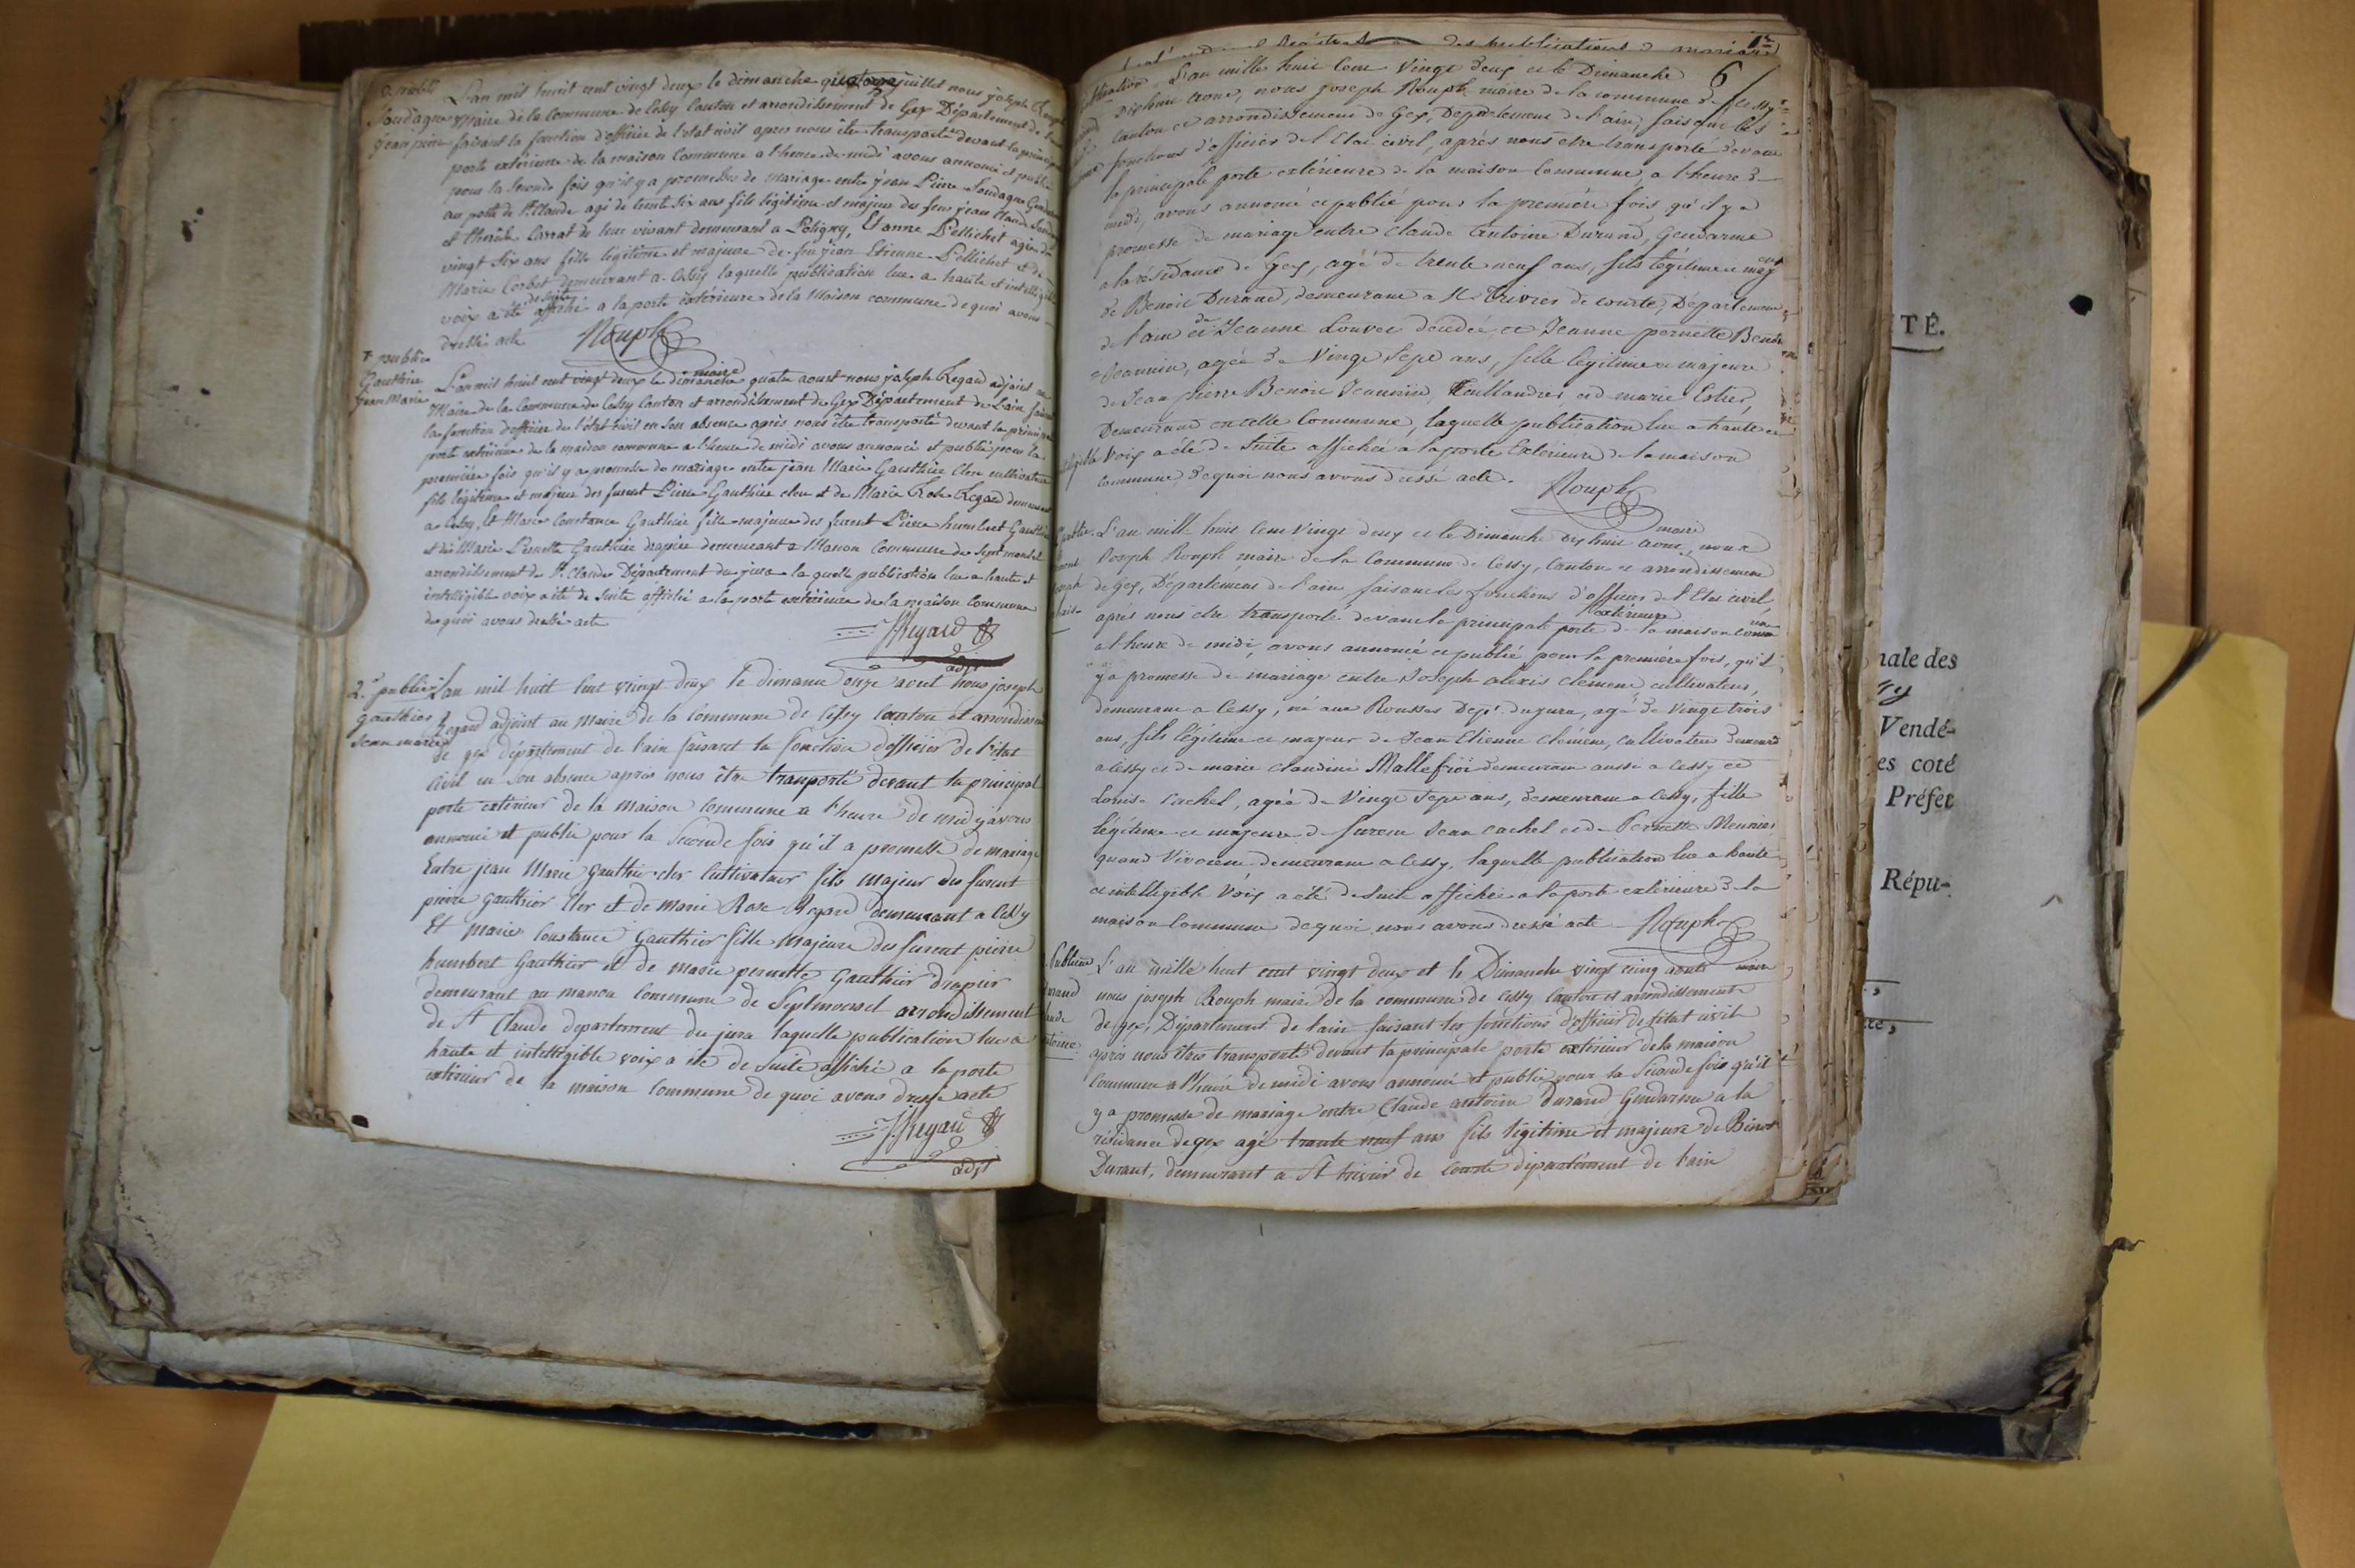 2. public
Jean pierre
L'an mil huit cent vingt deux le dimanche quatorze juillet nous joseph
Maire de la Commune de Cessy Canton et arrondissement de Gex Département de
faisant la fonction d'officier de l'etat civil apres nous être transporté devant la
porte extérieure de la maison Commune a l'heure de midi avons annoncé et publié
pour la seconde fois qu'il y a promesses de mariage entre jean Pierre
au poste de St Claude agé de trente six ans fils légitime et majeur des feux jean Claude
et de leur vivant demeurant a Poligny, Et anne Pellichet agée de
vingt six ans fille légitime et majeure de feu jean Etienne Pellichet et de
Marie Corbet demeurant a Cessy laquelle publication lue a haute et intelligible
voix a été de suite affiché a la porte extérieure de la Maison commune de quoi avons
dressé acte
Rouph
maire
1e public
Gauthier
Jean Marie
L'an mil huit cent vingt deux le dimanche quatre aoust nous joseph Regard adjoint au
Maire de la Commune de Cessy Canton et arrondissement de Gex Département de l'ain
la fonction d'officier de l'etat civil en son absence après nous être transporté devant la
porte extérieure de la maison commune a l'heure de midi avons annoncé et publié pour la
première fois qu'il y a promesse de mariage entre jean Marie Gauthier Clerc cultivateur
fils légitime et majeur des furent Pierre Gauthier clerc et de Marie Rose Regard demeurant
a Cessy, Et Marie Constance Gauthier fille majeure des furent Pierre humbert Gauthier
et de Marie Pernette Gauthier drapier demeurant a Manon Commune de Septmoncel
arrondissement de St Claude Département du jura la quelle publication lue a haute et
intelligible voix a été de suite affiché a la porte extérieure de la maison Commune
de quoi avons dressé acte
J Regard
adjt
2e public
gauthier
Jean marie
L'an mil huit cent vingt deux le dimanche onze aout nous joseph
Regard adjoint au Maire de la Commune de Cessy Canton et arrondissement
de gex département de l'ain faisant la fonction d'officier de l'etat
Civil en son absence après nous être transporté devant la principal
porte extérieur de la maison Commune a l'heure de midy avons
annoncé et publie pour la Seconde fois qu'il a promesse de mariage
Entre jean Marie Gauthier cler Cultivateur fils majeur des furent
pierre Gauthier Cler et de Marie Rose Regard demeurant a Cessy
Et Marie Constance Gauthier fille Majeure des furent pierre
humbert Gauthier et de marie pernette Gauthier drapier
demeurant au manon Commune de Septmoncel arrondissement
de St Claude departement du jura laquelle publication lue a
haute et intelligible voix a été de suite affiché a la porte
extérieur de la maison Commune de quoi avons dressé acte
J Regard
adjt
des publications de mariage
6
L'an mille huit Cent Vingt deux et le Dimanche
Dixhuit aout, nous joseph Rouph maire de la commune de Cessy
Canton et arrondissement de Gex, Departement de l'ain, faisant les
fonctions d'officier de l'Etat civil, après nous etre transporté devant
la principale porte extérieure de la maison Commune, a l'heure de
midi, avons annoncé et publié pour la première fois qu'il y a
promesse de mariage entre Claude Antoine Durand, Gendarme
a la residance de Gex, agé de trente neuf ans, fils légitime et majeur
de Benoit Durand, demeurant a St Trivier de Courte, Département
de l'ain et de Jeanne Louvet décédée et Jeanne pernette Benoite
Jeannin, agée de Vingt Sept ans, fille légitime et majeure
de Jean pierre Benoit Jeannin, et de marie
Demeurant en cette Commune, laquelle publication lue a haute et
intelligible voix a été de suite affichée a la porte Extérieure de la maison
Commune de quoi nous avons dressé acte.
Rouph
maire
L'an mille huit Cent Vingt deux et le Dimanche dix huit aout, nous
Joseph Rouph maire de la Commune de Cessy, Canton et arrondissement
de Gex, Département de l'ain faisant les fonctions d'officier de l'Etat civil,
après nous etre transporté devant la principale porte extérieure de la maison commune
a l'heure de midi, avons annoncé et publié pour la première fois, qu'il
y a promesse de mariage entre Joseph alexis Clement, cultivateur,
demeurant a Cessy, né aux Rousses Dept du jura, agé de Vingt trois
ans, fils légitime et majeur de Jean Etienne Clement, Cultivateur demeurant
a Cessy et de marie Claudine Mallefroi demeurant aussi a Cessy et
Louise Cachel, agée de Vingt Sept ans, demeurant a Cessy, fille
légitime et majeure de furent Jean Cachel et de Pernette Meunier
quand Vivoient demeurant a Cessy, laquelle publication lue a haute
et intelligible Voix a été de suite affichée a la porte extérieure de la
maison Commune de quoi nous avons dressé acte Rouph
maire
Durand
Claude
antoine
L'an mille huit cent vingt deux et le Dimanche vingt cinq aoust
nous joseph Rouph maire de la commune de Cessy Canton et arrondissement
de gex, Département de l'ain faisant les fonctions d'officier de l'etat civil
après nous êtres transporté devant la principale porte extérieur de la maison
Commune a l'heure de midi avons annoncé et publie pour la Seconde fois qu'il
y a promesse de mariage entre Claude antoine Durand Gendarme a la
résidance de gex agé trante neuf ans fils légitime et majeure de Benoit
Durant, demeurant a St trivier de courte département de l'ain
TÉ.
nale des
Vendé-
es coté
Préfet
Répu-